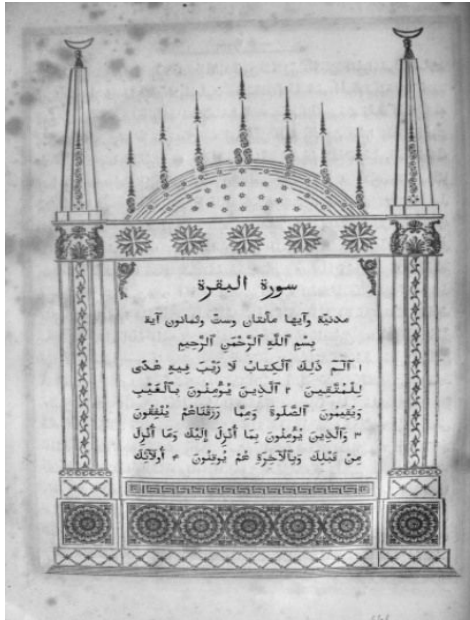 سورة البقرة
مدنيّة وآيها مائتان وستّ وثمانون آية
بِسْمِ ٱللّٰهِ ٱلرَّحْمٰنِ ٱلرَّحِيمِ
١ الٓمٓ ذٰلِكَ ٱلْكِتَابُ لَا رَيْبَ فِيهِ هُدًى
لِلْمُتَّقِينَ ٢ ٱلَّذِينَ يُؤْمِنُونَ بِٱلْغَيْبِ
وَيُقِيمُونَ ٱلصَّلٰوةَ وَمِمَّا رَزَقْنَاهُمْ يُنْفِقُونَ
٣ وَٱلَّذِينَ يُؤْمِنُونَ بِمَا أُنْزِلَ إِلَيْكَ وَمَا أُنْزِلَ
مِنْ قَبْلِكَ وَبِٱلْآخِرَةِ هُمْ يُوقِنُونَ ٤ أُولَآئِكَ